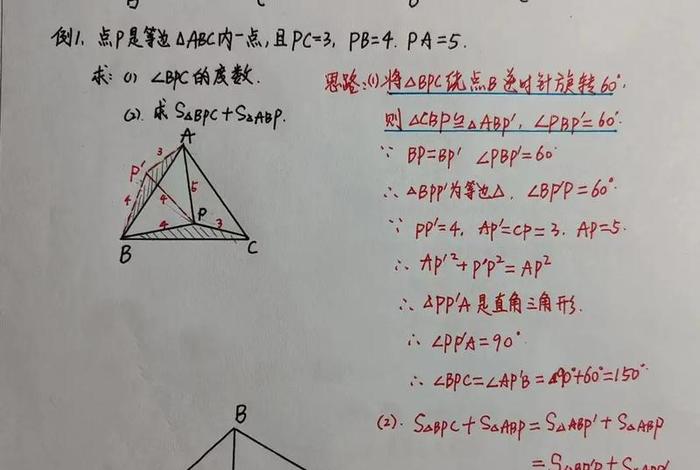 例1. 点P是等边△ABC内一点,且PC=3, PB=4. PA=5.
求: (1) ∠BPC的度数.
(2). 求S△BPC+S△ABP.
思路:(1)将△BPC绕点B逆时针旋转60°.
则△CBP≌△ABP', ∠PBP'=60°
∵ BP=BP' ∠PBP'=60°
∴ △BPP'为等边△, ∠BP'P=60°
∵ PP'=4, AP'=CP=3. AP=5.
∴ AP'²+P'P²=AP²
∴ △PP'A是直角三角形.
∴ ∠PP'A=90°
∴ ∠BPC=∠AP'B=90°+60°=150°
(2). S△BPC+S△ABP=S△ABP'+S△ABP
A
3
P'
4
4
5
P
4
3
B
C
B